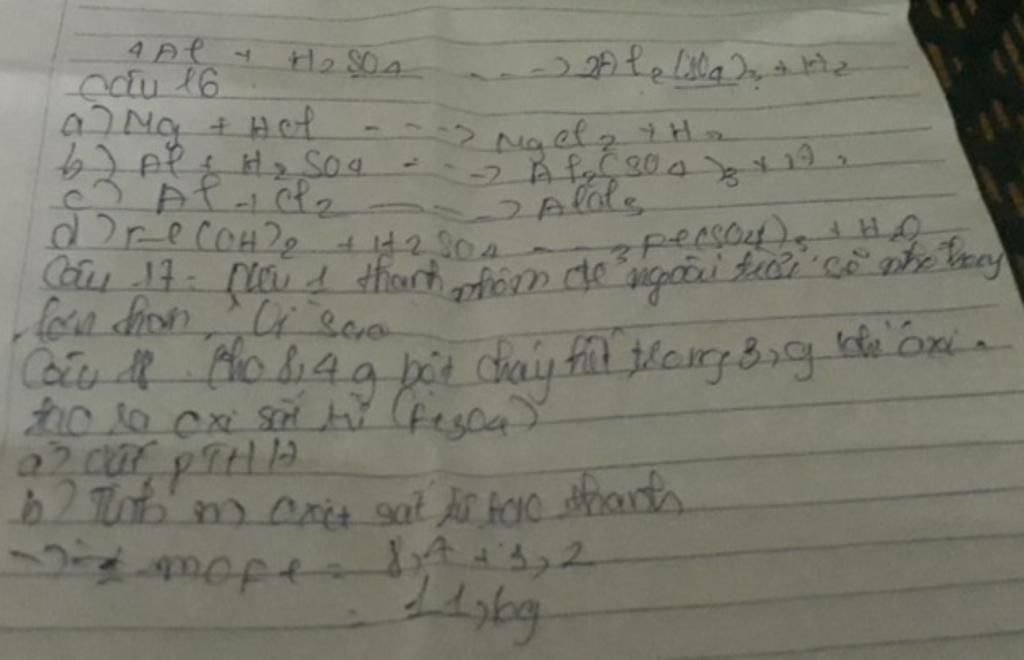 4Al + H2SO4 ---> 2Al2(SO4)3 + H2
Câu 16
a) Mg + HCl ---> MgCl2 + H2
b) Al + H2SO4 ---> Al2(SO4)3 + H2
c) Al + Cl2 ---> AlCl3
d) Fe(OH)2 + H2SO4 ---> Fe(SO4)3 + H2O
Câu 17: 1 thanh nhôm để ngoài trời có
hơn. Vì sao
Câu 18. Cho 8,4 g bột cháy hết trong 3, g khí oxi.
tạo ra oxi sắt từ (Fe3O4)
a) viết PTHH
b) Tính m oxit sắt từ tạo thành
= 8,4 + 3,2
= 11,6g